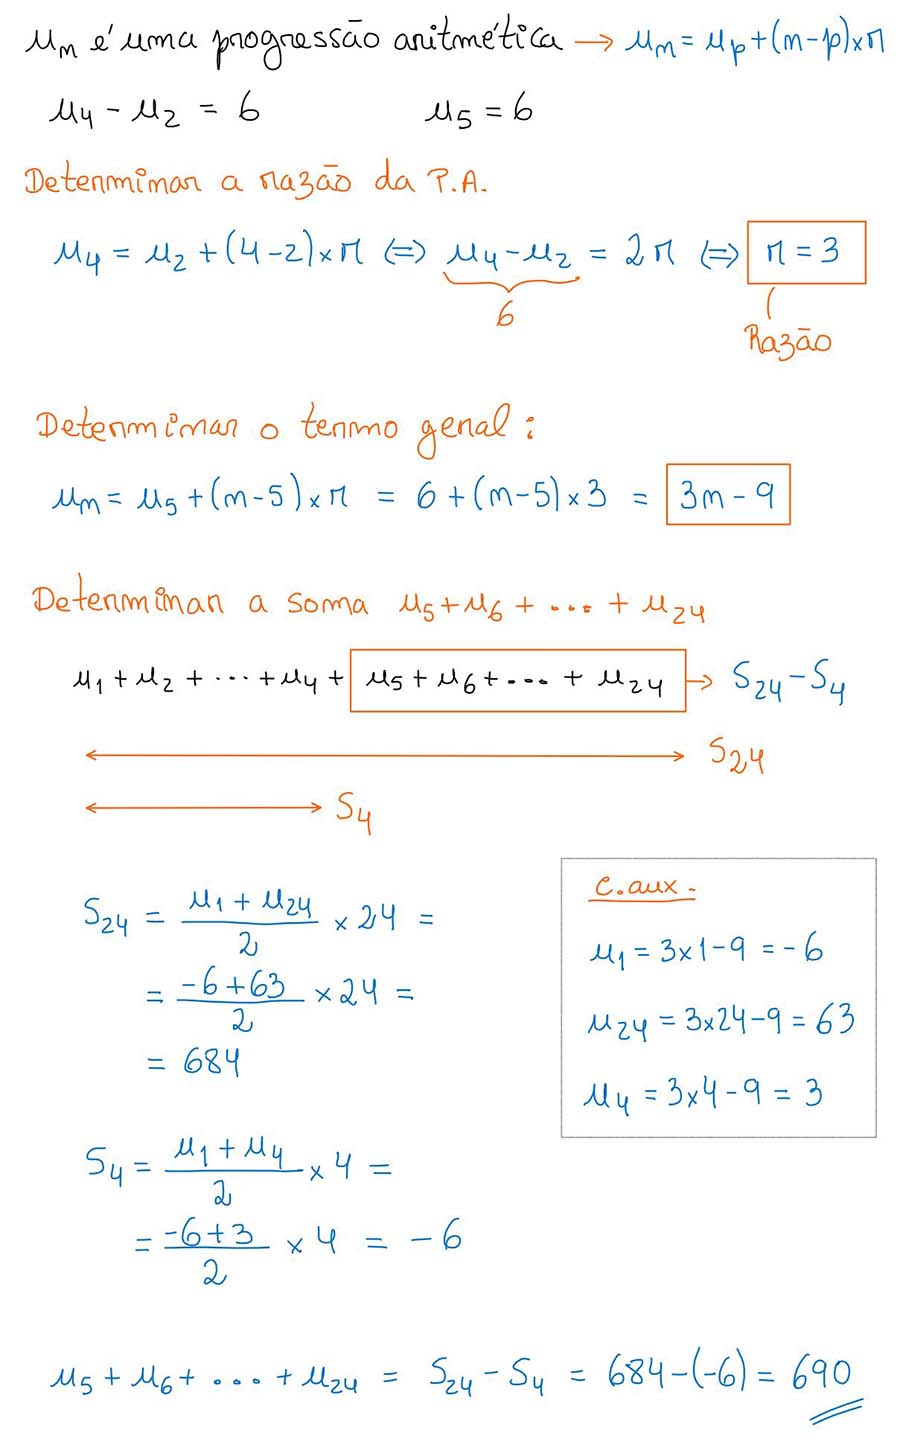 uₙ é uma progressão aritmética → uₙ = uₚ + (n-p)×r
u₄ - u₂ = 6 u₅ = 6
Determinar a razão da P.A.
u₄ = u₂ + (4-2)×r ⇔ u₄-u₂ = 2r ⇔ r = 3
6
Razão
Determinar o termo geral:
uₙ = u₅ + (n-5)×r = 6 + (n-5)×3 = 3n - 9
Determinar a soma u₅ + u₆ + ... + u₂₄
u₁ + u₂ + ... + u₄ + u₅ + u₆ + ... + u₂₄ → S₂₄ - S₄
S₂₄
S₄
S₂₄ = (u₁ + u₂₄)/2 × 24 =
= (-6+63)/2 × 24 =
= 684
C.aux.
u₁ = 3×1-9 = -6
u₂₄ = 3×24-9 = 63
u₄ = 3×4-9 = 3
S₄ = (u₁ + u₄)/2 × 4 =
= (-6+3)/2 × 4 = -6
u₅ + u₆ + ... + u₂₄ = S₂₄ - S₄ = 684-(-6) = 690